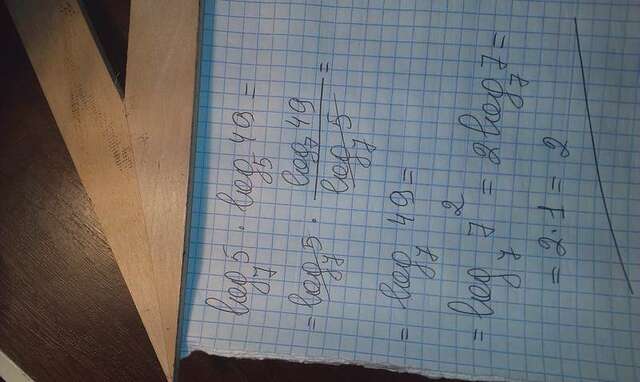 log₇5 · log₅49 =
= log₇5 · log₇49/log₇5 =
= log₇49 =
= log₇7² = 2log₇7 =
= 2·1 = 2